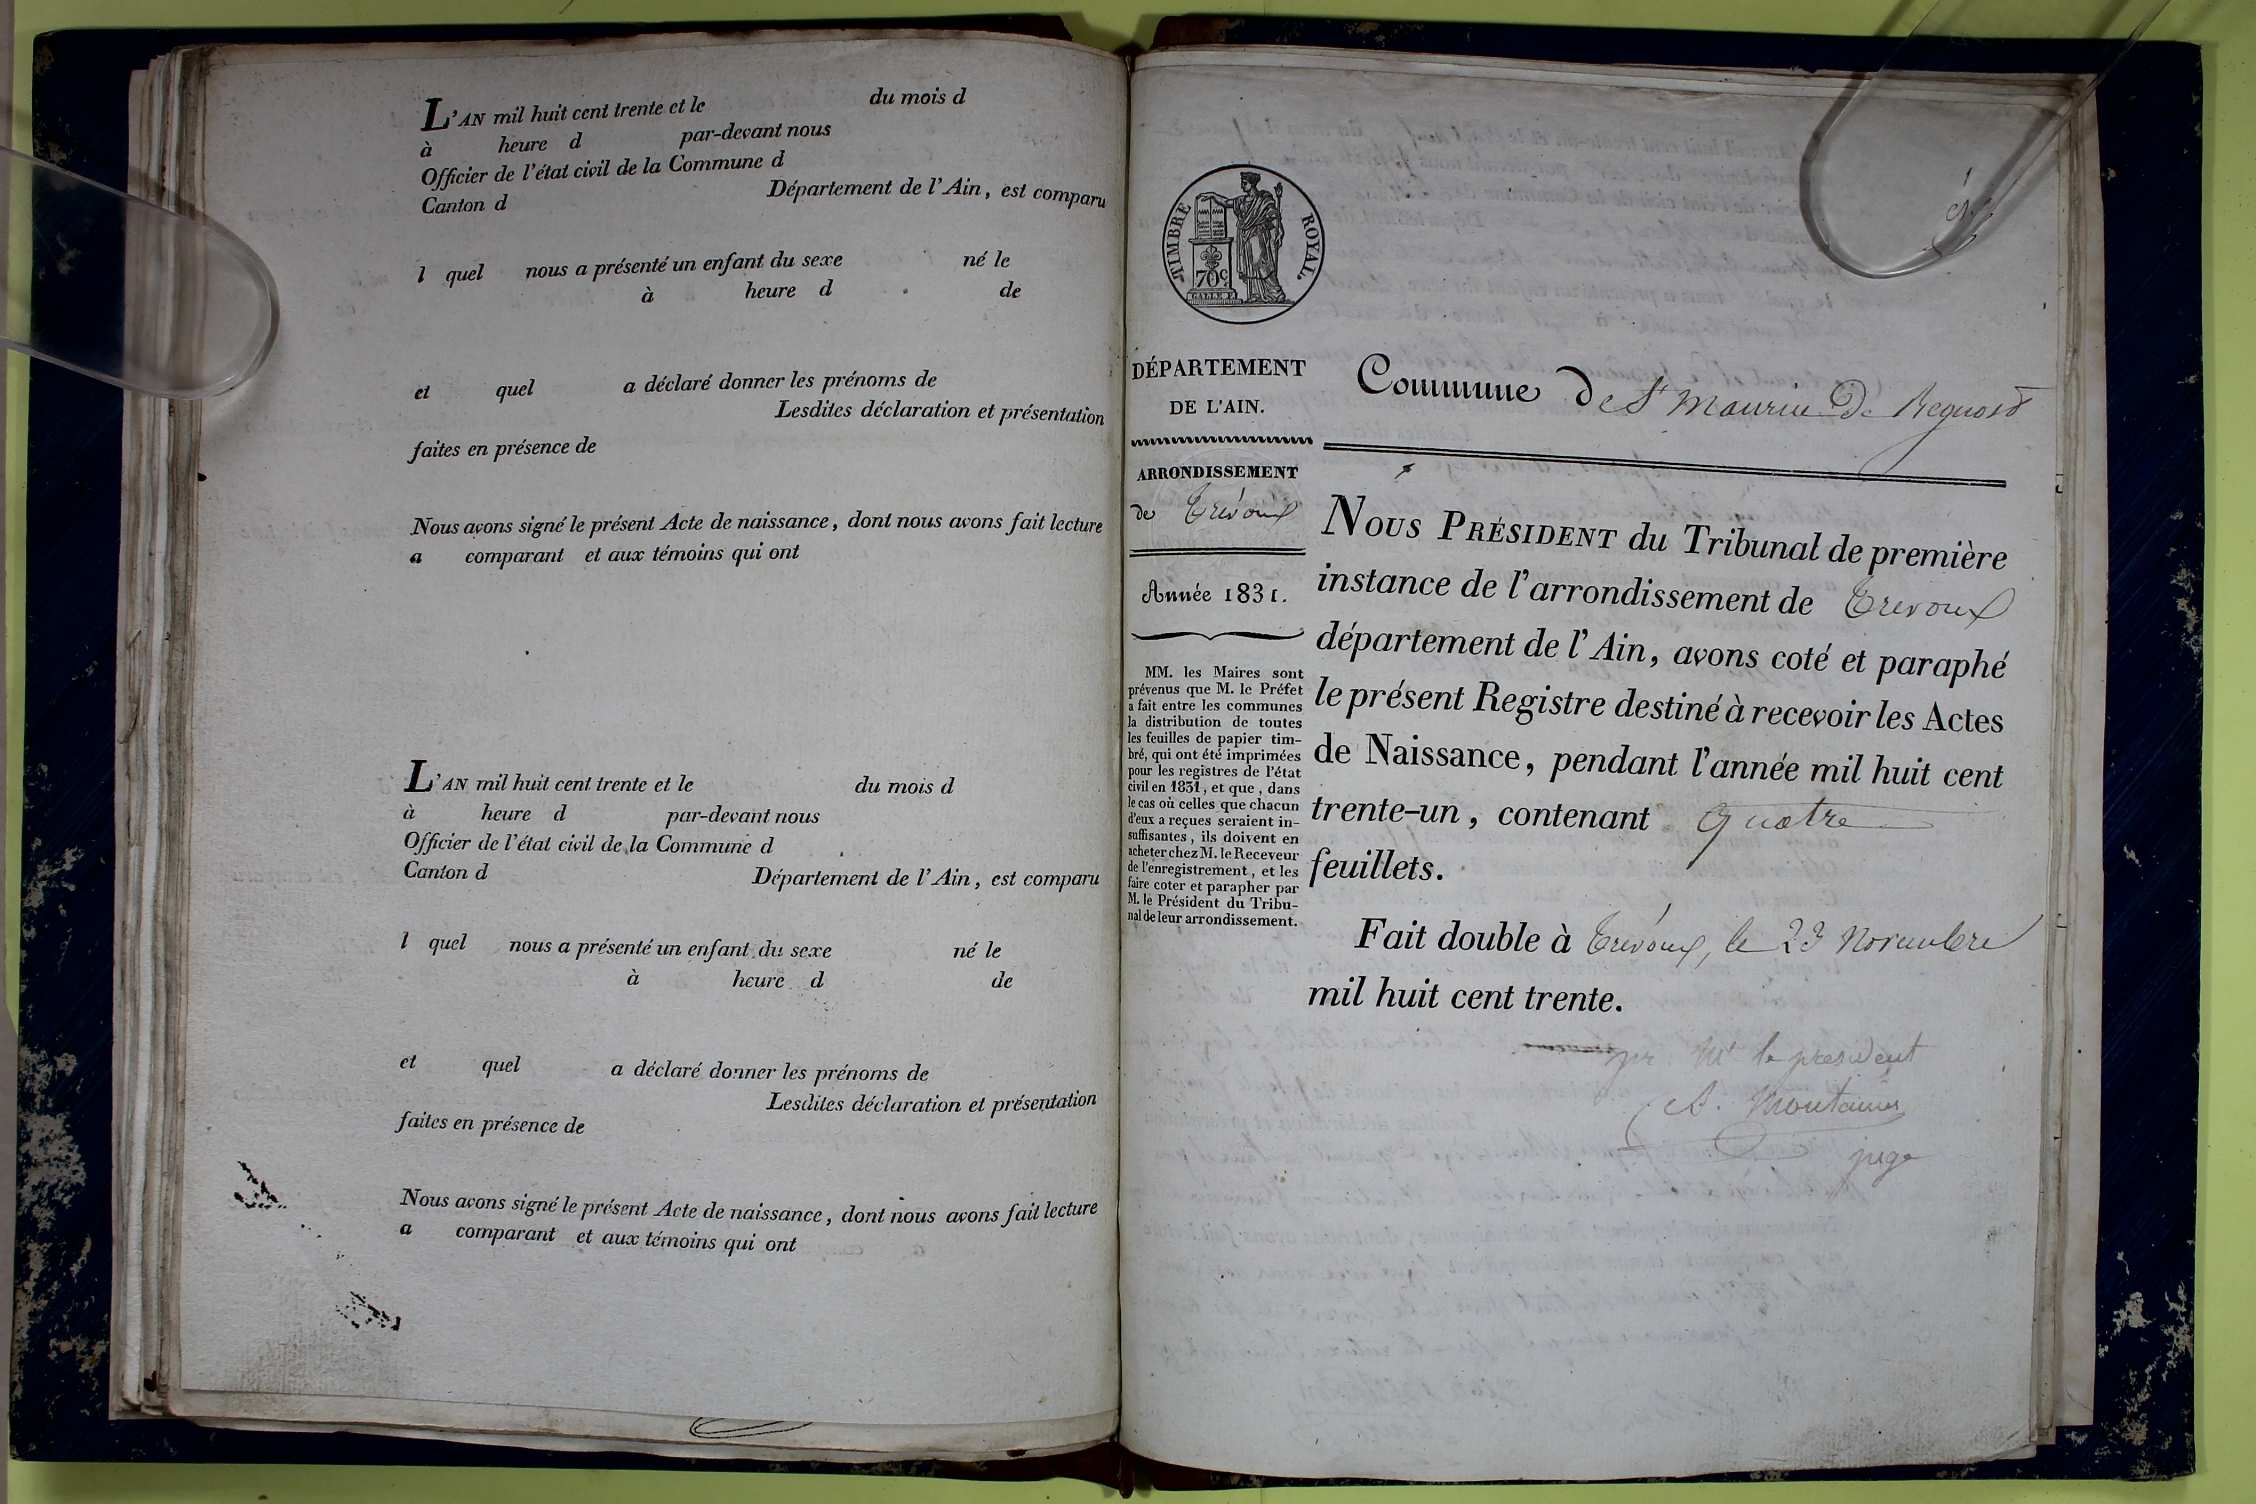 L'AN mil huit cent trente et le du mois d
à heure d par-devant nous
Officier de l'état civil de la Commune d
Canton d Département de l'Ain, est comparu
l quel nous a présenté un enfant du sexe né le
à heure d de
et quel a déclaré donner les prénoms de
Lesdites déclaration et présentation
faites en présence de
Nous avons signé le présent Acte de naissance, dont nous avons fait lecture
a comparant et aux témoins qui ont
L'AN mil huit cent trente et le du mois d
à heure d par-devant nous
Officier de l'état civil de la Commune d
Canton d Département de l'Ain, est comparu
l quel nous a présenté un enfant du sexe né le
à heure d de
et quel a déclaré donner les prénoms de
Lesdites déclaration et présentation
faites en présence de
Nous avons signé le présent Acte de naissance, dont nous avons fait lecture
a comparant et aux témoins qui ont
TIMBRE ROYAL.
70c
DÉPARTEMENT
DE L'AIN.
ARRONDISSEMENT
de Trévoux
Année 1831.
MM. les Maires sont
prévenus que M. le Préfet
a fait entre les communes
la distribution de toutes
les feuilles de papier tim-
bré, qui ont été imprimées
pour les registres de l'état
civil en 1831, et que, dans
le cas où celles que chacun
d'eux a reçues seraient in-
suffisantes, ils doivent en
acheter chez M. le Receveur
de l'enregistrement, et les
faire coter et parapher par
M. le Président du Tribu-
nal de leur arrondissement.
Commune de St Maurice De
NOUS PRÉSIDENT du Tribunal de première
instance de l'arrondissement de Trevoux
département de l'Ain, avons coté et paraphé
le présent Registre destiné à recevoir les Actes
de Naissance, pendant l'année mil huit cent
trente-un, contenant quatre
feuillets.
Fait double à Trévoux, le 23 Novembre
mil huit cent trente.
pr. Mr le president
juge